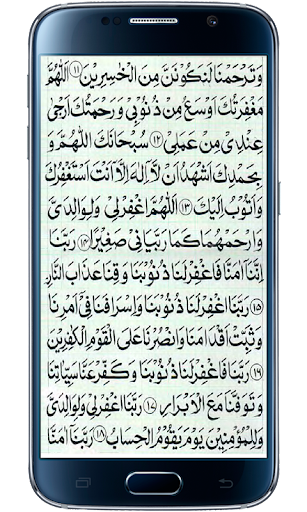 وَتَرْحَمْنَا لَنَكُوْنَنَّ مِنَ الْخٰسِرِيْنَ ﴿۱۱﴾ اَللّٰهُمَّ
مَغْفِرَتُكَ اَوْسَعُ مِنْ ذُنُوْبِيْ وَرَحْمَتُكَ اَرْجٰى
عِنْدِيْ مِنْ عَمَلِيْ ﴿۱۲﴾ سُبْحَانَكَ اللّٰهُمَّ وَ
بِحَمْدِكَ اَشْهَدُ اَنْ لَّا اِلٰهَ اِلَّا اَنْتَ اَسْتَغْفِرُكَ
وَاَتُوْبُ اِلَيْكَ ﴿۱۳﴾ اَللّٰهُمَّ اغْفِرْلِيْ وَلِوَالِدَيَّ
وَارْحَمْهُمَا كَمَا رَبَّيَانِيْ صَغِيْرًا ﴿۱۴﴾ رَبَّنَا
اِنَّنَا اٰمَنَّا فَاغْفِرْلَنَا ذُنُوْبَنَا وَقِنَا عَذَابَ النَّارِ
﴿۱۵﴾ رَبَّنَا اغْفِرْلَنَا ذُنُوْبَنَا وَاِسْرَافَنَا فِيْ اَمْرِنَا
وَثَبِّتْ اَقْدَامَنَا وَانْصُرْنَا عَلَى الْقَوْمِ الْكٰفِرِيْنَ
﴿۱۶﴾ رَبَّنَا فَاغْفِرْلَنَا ذُنُوْبَنَا وَكَفِّرْ عَنَّا سَيِّاٰتِنَا
وَتَوَفَّنَا مَعَ الْاَبْرَارِ ﴿۱۷﴾ رَبَّنَا اغْفِرْلِيْ وَلِوَالِدَيَّ
وَلِلْمُؤْمِنِيْنَ يَوْمَ يَقُوْمُ الْحِسَابُ ﴿۱۸﴾ رَبَّنَا اٰمَنَّا